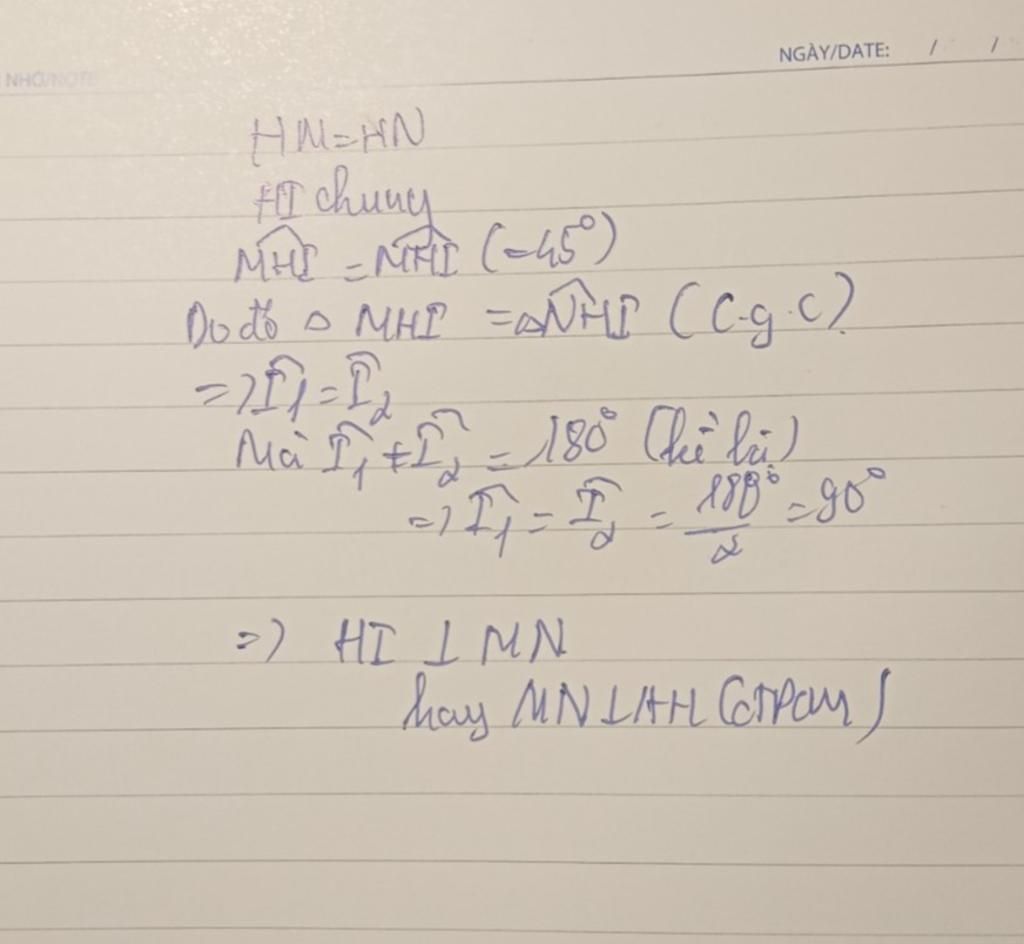 NGÀY/DATE: / /
NHỚ/NOTE
HM=HN
HI chung
\widehat{MHI} = \widehat{MHI} (=45°)
Do đó △ MHI = △\widehat{NHI} (c.g.c)
=> \widehat{I}_1 = \widehat{I}_2
Mà \widehat{I}_1 + \widehat{I}_2 = 180° (kề bù)
=> \widehat{I}_1 = \widehat{I}_2 = \frac{180°}{2} = 90°
=> HI ⊥ MN
hay MN ⊥ AH (đpcm)